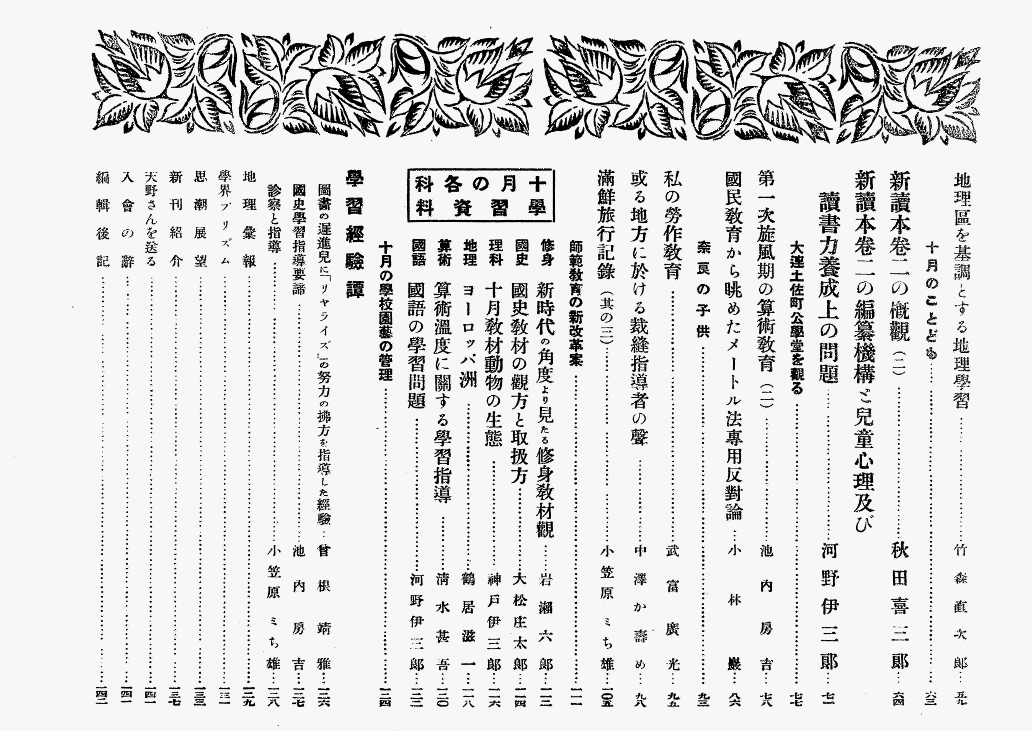 地理區を基調とする地理學習……竹森直次郎…五九
十月のことども……六三
新讀本卷二の慨觀(二)……秋田喜三郞…六四
新讀本卷二の編纂機構と兒童心理及び
讀書力養成上の問題……河野伊三郞…七二
大連土佐町公學堂を觀る……七七
第一次旋風期の算術敎育(二)……池内房吉…七八
國民敎育から眺めたメートル法專用反對論…小林巖…八六
奈良の子供……九三
私の勞作敎育……武富廣光…九五
或る地方に於ける裁縫指導者の聲……中澤か壽め…九八
滿鮮旅行記錄(其の三)……小笠原とち雄…一〇五
師範敎育の新改革案……一一一
十月の各科
學習資料
修身 新時代の角度より見たる修身敎材觀…岩瀨六郞…一二三
國史 國史敎材の觀方と取扱方……大松庄太郞…一二四
理科 十月敎材動物の生態……神戶伊三郞…一二六
地理 ヨーロッパ洲……鶴居滋一…一二八
算術 算術溫度に關する學習指導……淸水甚吾…一三〇
國語 國語の學習問題……河野伊三郞…一三三
十月の學校園藝の管理……一三四
學習經驗譚
圖畵の遲進兒に「リヤライズ」の努力の拂方を指導した經驗…曾根靖雅…一三六
國史學習指導要諦……池内房吉…一三七
診察と指導……小笠原とち雄…一三八
地理彙報……一三九
學界プリズム……一三一
思潮展望……一三三
新刊紹介……一三七
天野さんを送る……一四一
入會の辭……一四一
編輯後記……一四二